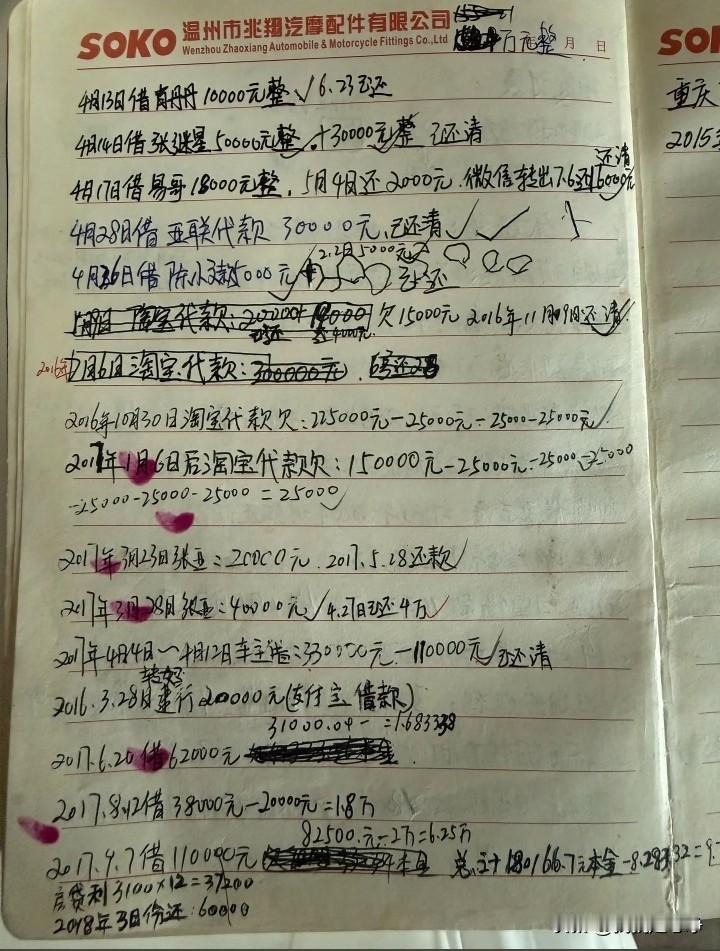 SOKO 温州市兆翔汽摩配件有限公司
Wenzhou Zhaoxiang Automobile & Motorcycle Fittings Co.,Ltd
万元整 月 日
4月13日借 10000元整√6.23已还
4月14日借张继星50000元整√+30000元整 已还清
还清
4月17日借易哥18000元整,5月4日还2000元.微信转出7.6还16000元
4月28日借亚联代款 30000元.已还清√√
2.2日5000元
4月26日借陈 5000元 已还
淘宝代款: 欠15000元 2016年11月09日还清√
2016年 月6日淘宝代款:300000元
2016年10月30日淘宝代款欠:225000元-25000元-25000-25000元√
2017年1月6日后淘宝代款欠:150000元-25000元-25000-25000
-25000-25000-25000=25000√
2017年3月23日张亚:20000元.2017.5.28还款√
2017年3月28日张亚:40000元√4.27日已还4万√
2017年4月4日~4月12日车主借:330000元-110000元√已还清
转好
2016.3.28日建行200000元(支付宝借款)
31000.04- =1.683338
2017.6.20借62000元
2017.8.12借38000元-20000元=1.8万
82500.元-2万=6.25万
2017.9.7借110000元 总计180166.7元本金-8.28332=9.
房贷利3100×12=37200
2018年3月份还:60000
SOK
重庆
2015